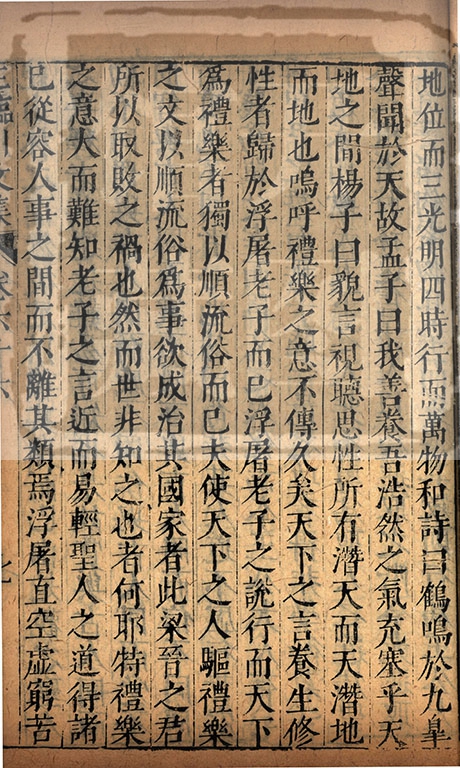 地位而三光明四時行而萬物和詩曰鶴鳴於九皐
聲聞於天故孟子曰我善養吾浩然之氣充塞乎天
地之間楊子曰貌言視聽思性所有潛天而天潛地
而地也嗚呼禮樂之意不傳久矣天下之言養生修
性者歸於浮屠老子而已浮屠老子之說行而天下
為禮樂者獨以順流俗而已夫使天下之人驅禮樂
之文以順流俗為事欲成治其國家者此梁晉之君
所以取敗之禍也然而世非知之也者何耶特禮樂
之意大而難知老子之言近而易輕聖人之道得諸
已從容人事之間而不離其類焉浮屠直空虛窮苦